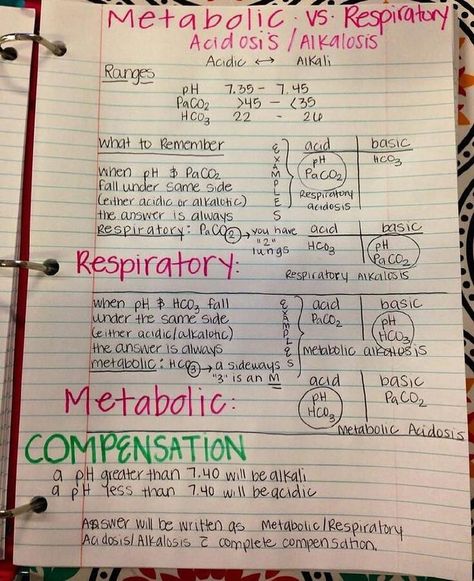 Metabolic vs. Respiratory
Acidosis/Alkalosis
Acidic ↔ Alkali
Ranges
pH 7.35 - 7.45
PaCO2 >45 - <35
HCO3 22 - 26
What to Remember
when pH & PaCO2
fall under same side
(either acidic or alkalotic)
the answer is always
Respiratory: PaCO2 → you have
"2"
lungs
EXAMPLES
acid basic
pH HCO3
PaCO2
Respiratory
acidosis
acid basic
HCO3 pH
PaCO2
Respiratory Alkalosis
Respiratory:
when pH & HCO3 fall
under the same side
(either acidic/alkalotic)
the answer is always
metabolic: HCO3 → a sideways
"3" is an M
EXAMPLES
acid basic
PaCO2 pH
HCO3
metabolic alkalosis
acid basic
pH PaCO2
HCO3
Metabolic Acidosis
Metabolic:
COMPENSATION
a pH greater than 7.40 will be alkali
a pH less than 7.40 will be acidic
Answer will be written as Metabolic/Respiratory
Acidosis/Alkalosis c̄ complete compensation.